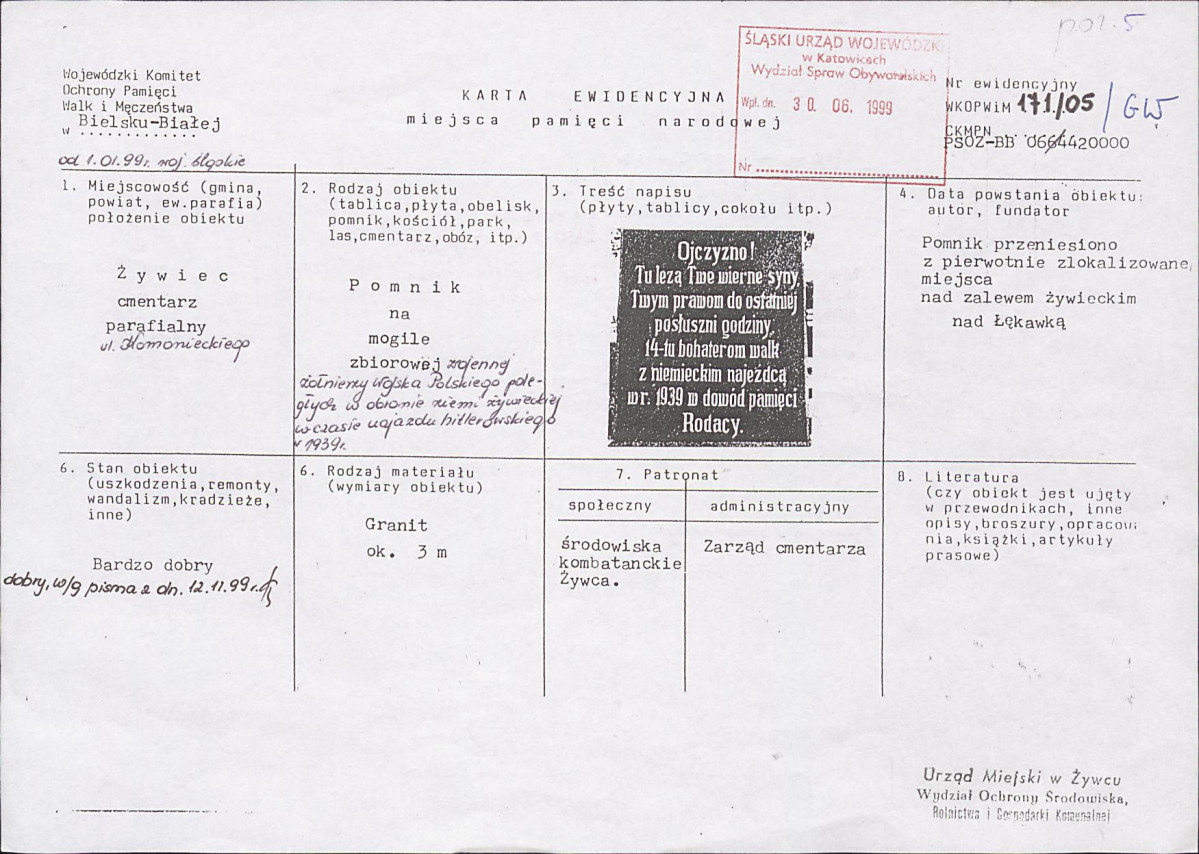 poz. 5
ŚLĄSKI URZĄD WOJEWÓDZKI
w Katowicach
Wydział Spraw Obywatelskich
Wpł. dn. 30. 06. 1999
Nr
Wojewódzki Komitet
Ochrony Pamięci
Walk i Męczeństwa
w Bielsku-Białej
KARTA EWIDENCYJNA
miejsca pamięci narodowej
Nr ewidencyjny
WKOPWiM 171/05 / GW
CKMPN
PSOZ-BB 0664420000
od 1.01.99r. woj. śląskie
1. Miejscowość (gmina,
powiat, ew.parafia)
położenie obiektu
Żywiec
cmentarz
parafialny
ul. Komonieckiego
2. Rodzaj obiektu
(tablica,płyta,obelisk,
pomnik,kościół,park,
las,cmentarz,obóz, itp.)
Pomnik
na
mogile
zbiorowej wojennej
żołnierzy Wojska Polskiego pole-
głych w obronie ziemi żywieckiej
w czasie najazdu hitlerowskiego
w 1939r.
3. Treść napisu
(płyty,tablicy,cokołu itp.)
Ojczyzno!
Tu leżą Twe wierne syny,
Twym prawom do ostatniej
posłuszni godziny.
14-tu bohaterom walk
z niemieckim najeźdcą
w r. 1939 w dowód pamięci
Rodacy.
4. Data powstania obiektu:
autor, fundator
Pomnik przeniesiono
z pierwotnie zlokalizowane
miejsca
nad zalewem żywieckim
nad Łękawką
6. Stan obiektu
(uszkodzenia,remonty,
wandalizm,kradzieże,
inne)
Bardzo dobry
dobry, w/g pisma z dn. 12.11.99r.
6. Rodzaj materiału
(wymiary obiektu)
Granit
ok. 3 m
7. Patronat
społeczny
środowiska
kombatanckie
Żywca.
administracyjny
Zarząd cmentarza
8. Literatura
(czy obiekt jest ujęty
w przewodnikach, inne
opisy,broszury,opracow
nia,książki,artykuły
prasowe)
Urząd Miejski w Żywcu
Wydział Ochrony Środowiska,
Rolnictwa i Gospodarki Komunalnej